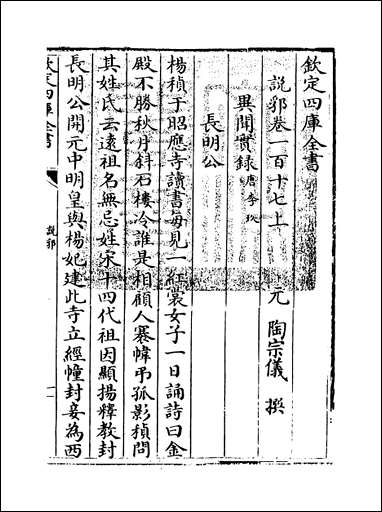 欽定四庫全書
說郛卷一百十七上
元 陶宗儀 撰
異聞實録 唐李玫
長明公
楊稹于昭應寺讀書每見一紅裳女子一日誦詩曰金
殿不勝秋月斜石樓冷誰是相顧人褰幃弔孤影稹問
其姓氏云遠祖名無忌姓宋十四代祖因顯揚釋教封
長明公開元中明皇與楊妃建此寺立經幢封妾為西
欽定四庫全書
說郛
一